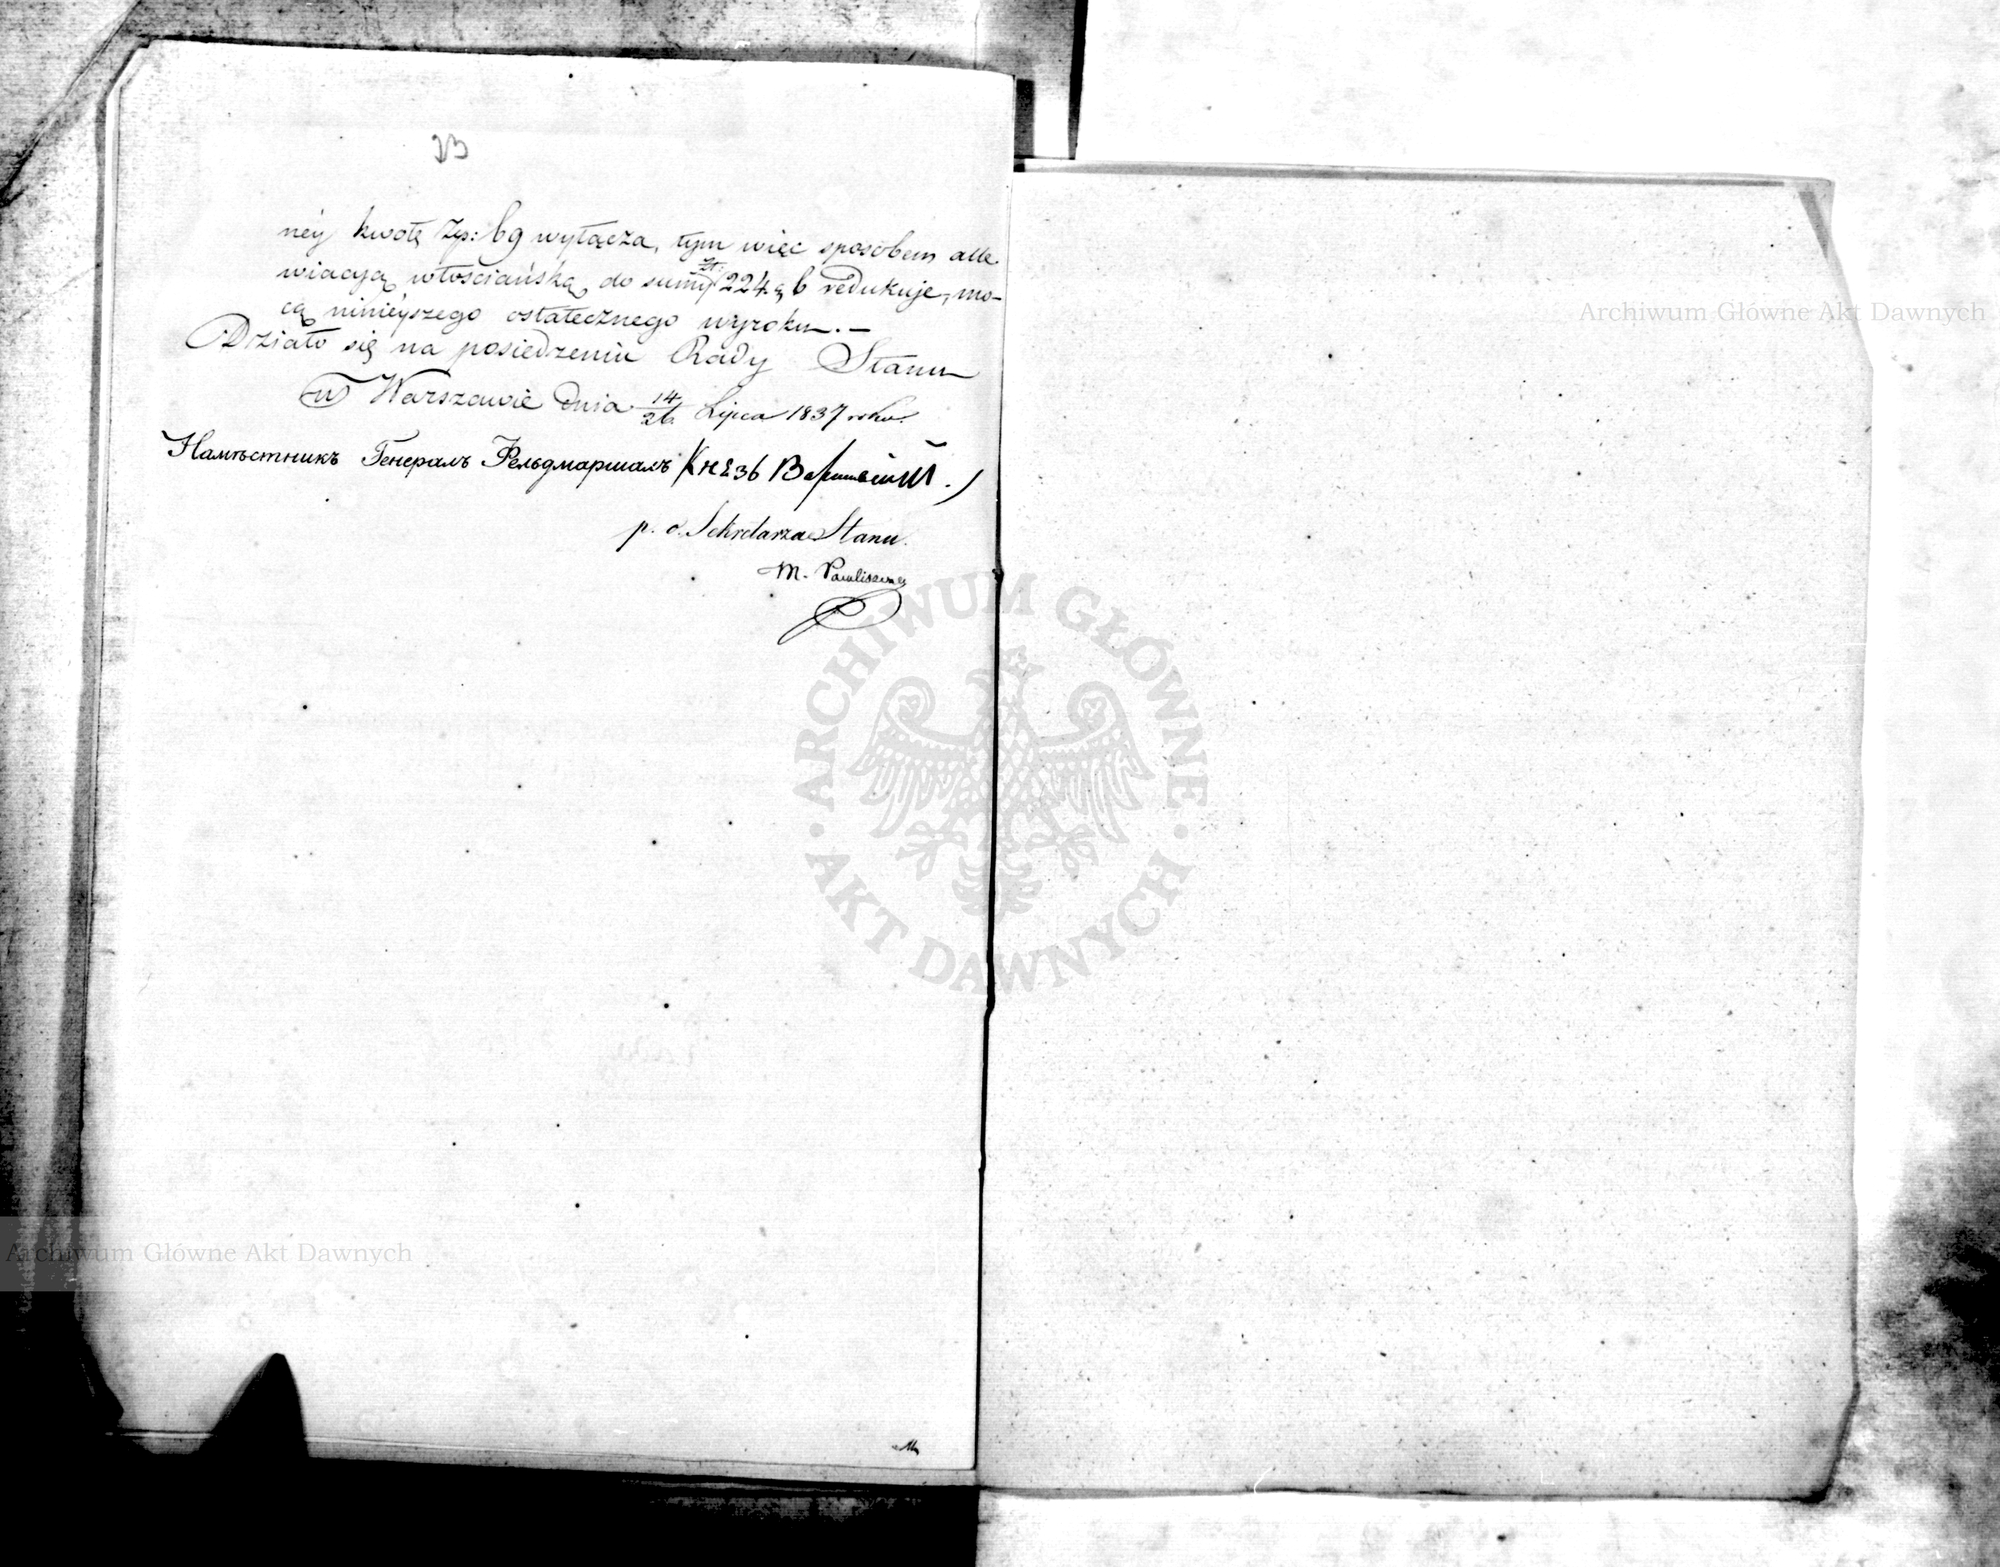 23
ney kwotę Zp: 69 wyłącza, tym więc sposobem alle
wiacyą włosciańską do summy Zł: 224 g. 6 redukuje, mo-
cą ninieyszego ostatecznego wyroku. —
Działo się na posiedzeniu Rady Stanu
w Warszawie dnia 14/26 Lipca 1837 roku.
Намѣстникъ Генералъ Фельдмаршалъ Князь Варшавскій
p. o. Sekretarza Stanu.
M. Pawliszew
Archiwum Główne Akt Dawnych
ARCHIWUM GŁÓWNE · AKT DAWNYCH ·
Archiwum Główne Akt Dawnych